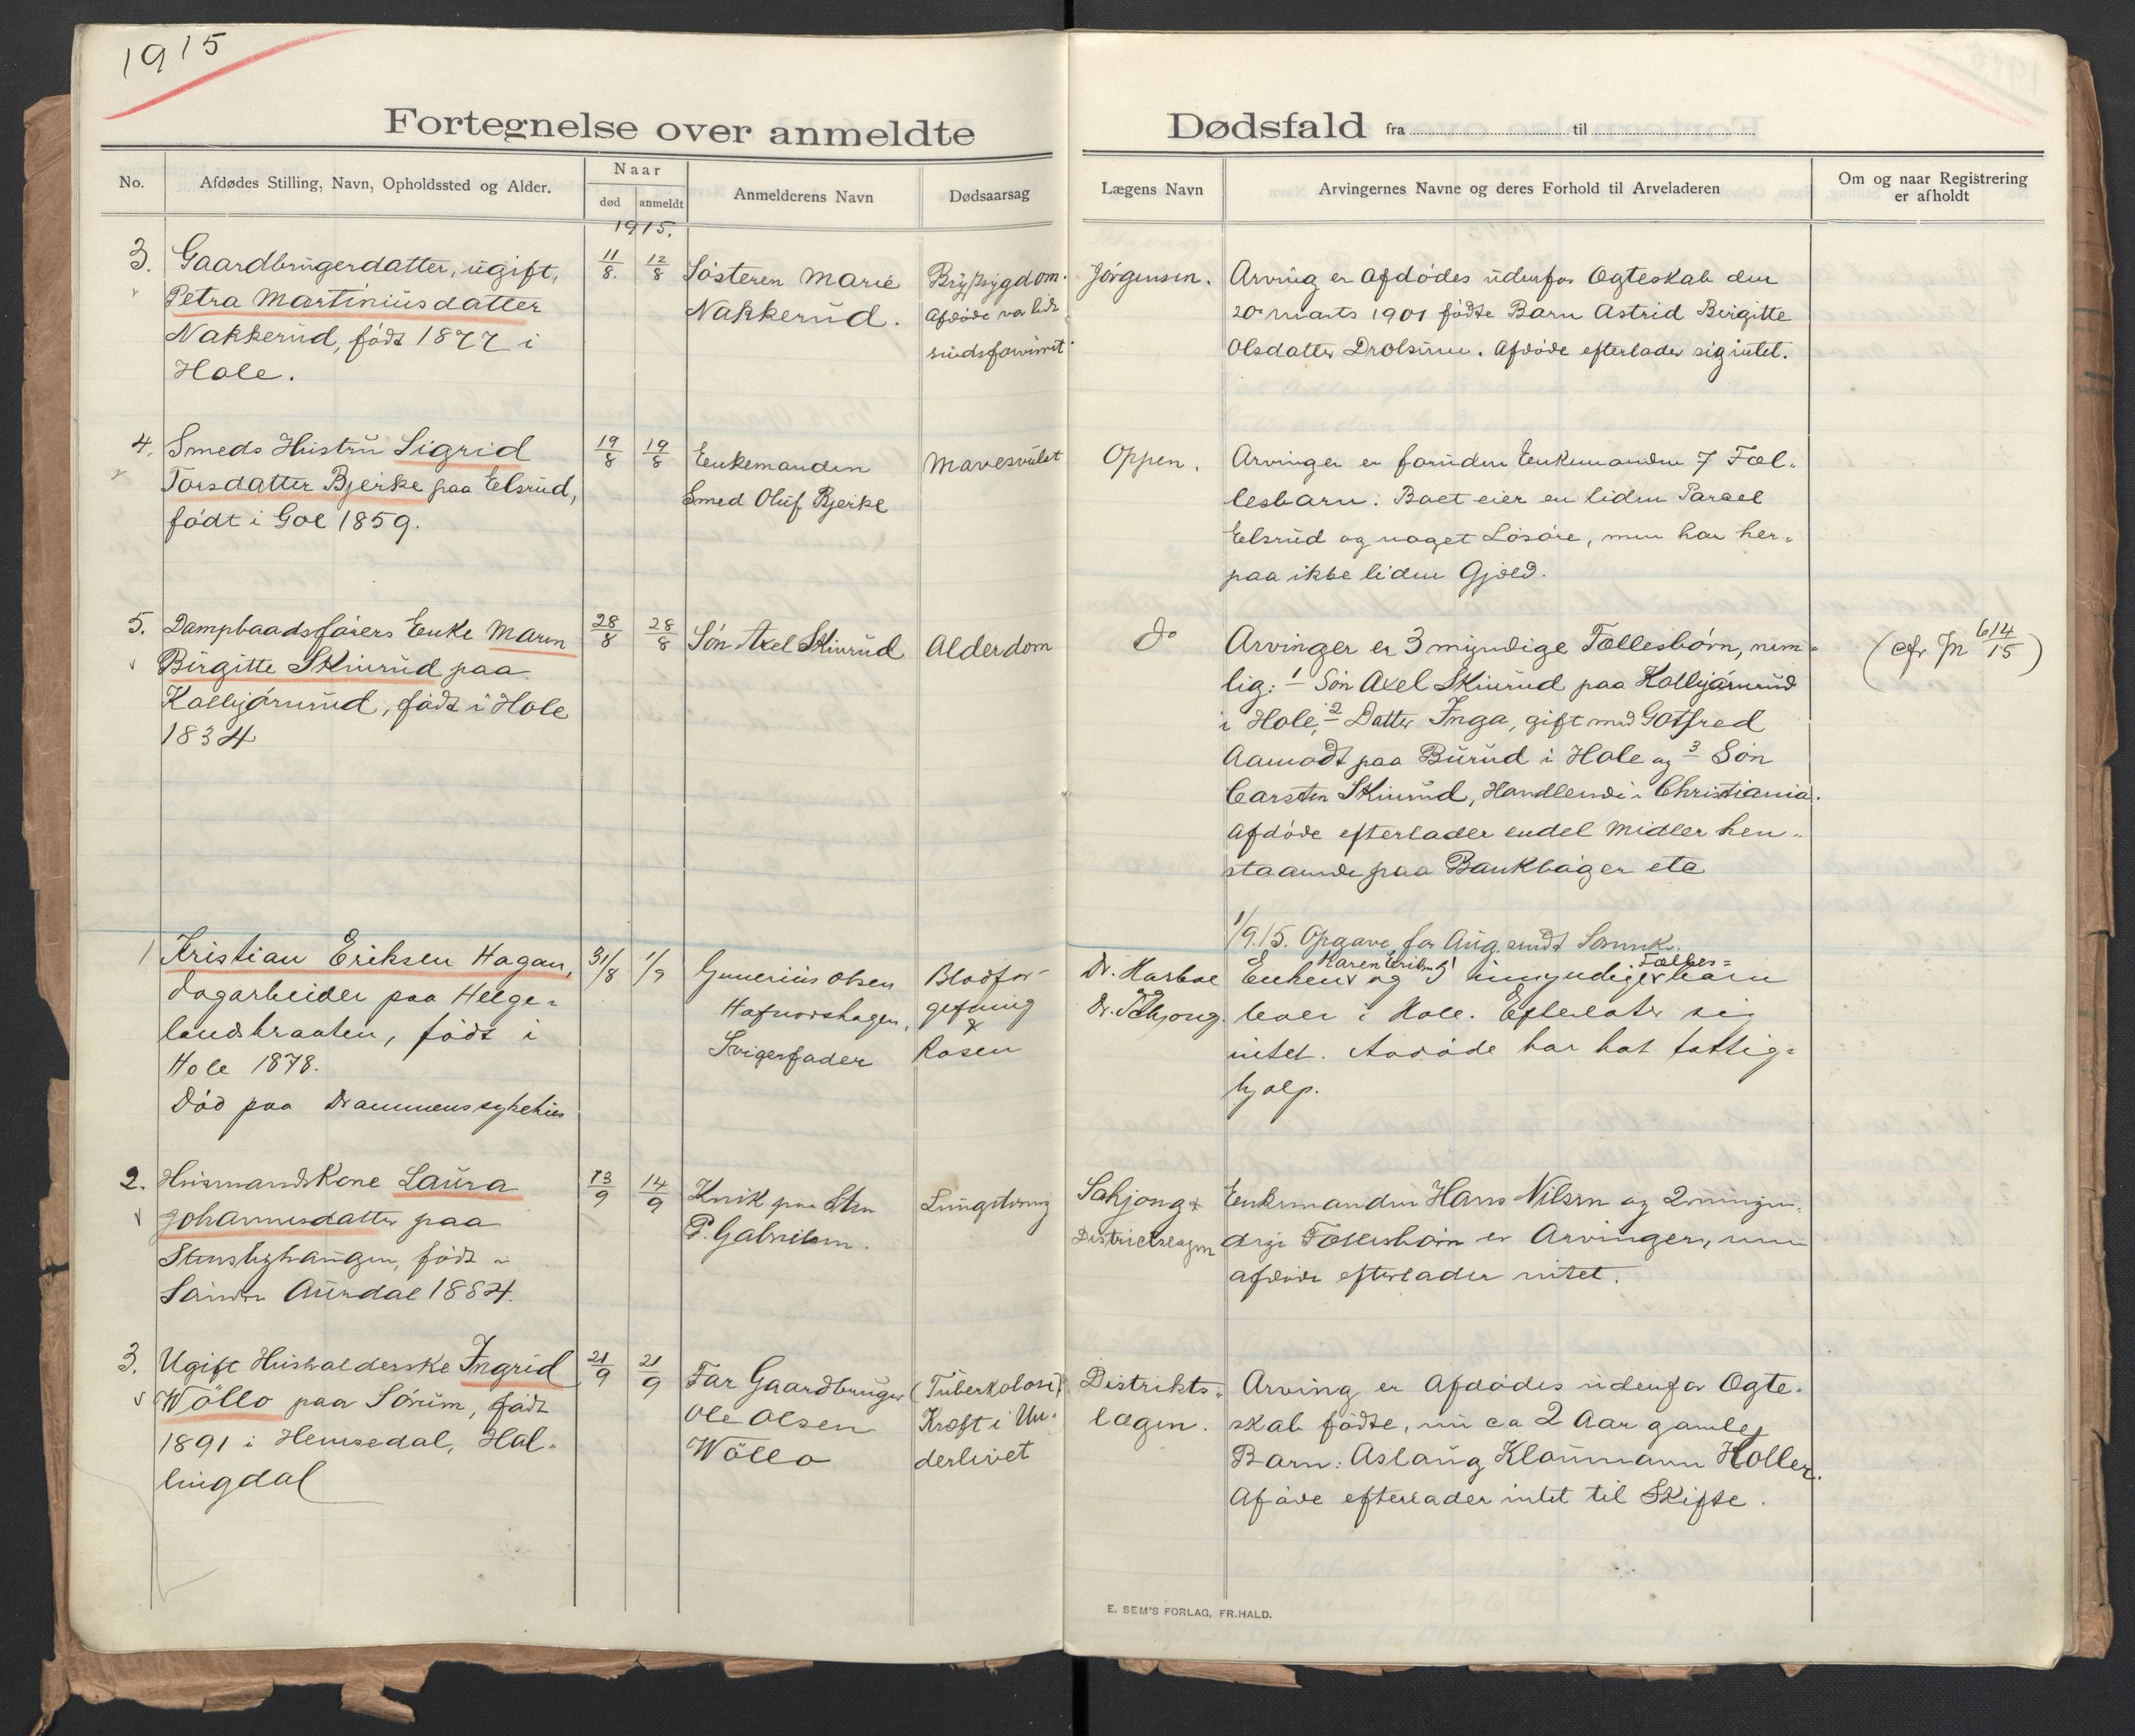 1915
Fortegnelse over anmeldte Dødsfald fra til
No.
Afdødes Stilling, Navn, Opholdssted og Alder.
Naar
død
anmeldt
Anmelderens Navn
Dødsaarsag
Lægens Navn
Arvingernes Navne og deres Forhold til Arveladeren
Om og naar Registrering
er afholdt
1915.
3. Gaardbrugerdatter, ugift,
Petra Martiniusdatter
Nakkerud, født 1877 i
Hole.
11/8. 12/8
Søsteren Marie
Nakkerud.
Brystsygdom.
Afdøde var lidt
sindsforvirret
Jørgensen.
Arving er Afdødes udenfor Ægteskab den
20 marts 1901 fødte Barn Astrid Birgitte
Olsdatter Drolsum. Afdøde efterlader sig intet.
4. Smeds Hustru Sigrid
Torsdatter Bjerke paa Elsrud,
født i Gol 1859.
19/8 19/8
Enkemanden
Smed Oluf Bjerke
Mavesvulst
Oppen.
Arvinger er foruden Enkemanden 7 Fæl-
lesbarn. Boet eier en liden Parsel
Elsrud og noget Løsøre, men har her-
paa ikke liden Gjæld.
5. Dampbaadsførers Enke Maren
Birgitte Skinrud paa
Kolbjørnrud, født i Hole
1834
28/8 28/8
Søn Axel Skinrud
Alderdom
Do
Arvinger er 3 myndige Fællesbørn, nem-
lig: 1 Søn Axel Skinrud paa Kolbjørnrud
i Hole, 2 Datter Inga, gift med Gotfred
Aamodt paa Burud i Hole og 3 Søn
Carsten Skinrud, Handlende i Christiania.
Afdøde efterlader endel Midler hen-
staaende paa Bankbøger etc
(cfr Jn 614/15)
1/9.15. Opgave for Aug. sendt
1 Kristian Eriksen Hagan,
dagarbeider paa Helge-
landsbraaten, født i
Hole 1878.
Død paa Drammens sykehus
31/8 1/9
Gunerius Olsen
Hafnorshagen,
Svigerfader
Blodfor-
gifning
&
Rosen
Dr. Harboe
og
Dr. Schjong.
Karen
Fælles=
Enken og 5 umyndige barn
lever i Hole. Efterlater sig
intet. Avdøde har hat fattig=
hjælp.
2. Husmandskone Laura
Johannesdatter paa
født i
Søndre Aurdal 1884.
13/9 14/9
P. Gabrielsen.
Schjong &
Districtslægen
Enkemanden Hans Nilsen og 2 umyn-
dige Fællesbørn er Arvinger, men
afdøde efterlader intet.
3. Ugift Husholderske Ingrid
Wøllo paa Sørum, født
1891 i Hemsedal, Hal-
lingdal
21/9 21/9
Far Gaardbruger
Ole Olsen
Wøllo
(Tuberkolose)
Kræft i Un-
derlivet
Distrikts-
lægen.
Arving er Afdødes udenfor Ægte-
skab fødte, nu ca 2 Aar gamle
Barn: Aslaug Klaumann Holler.
Afdøde efterlader intet til Skifte.
E. SEM'S FORLAG, FR.HALD.